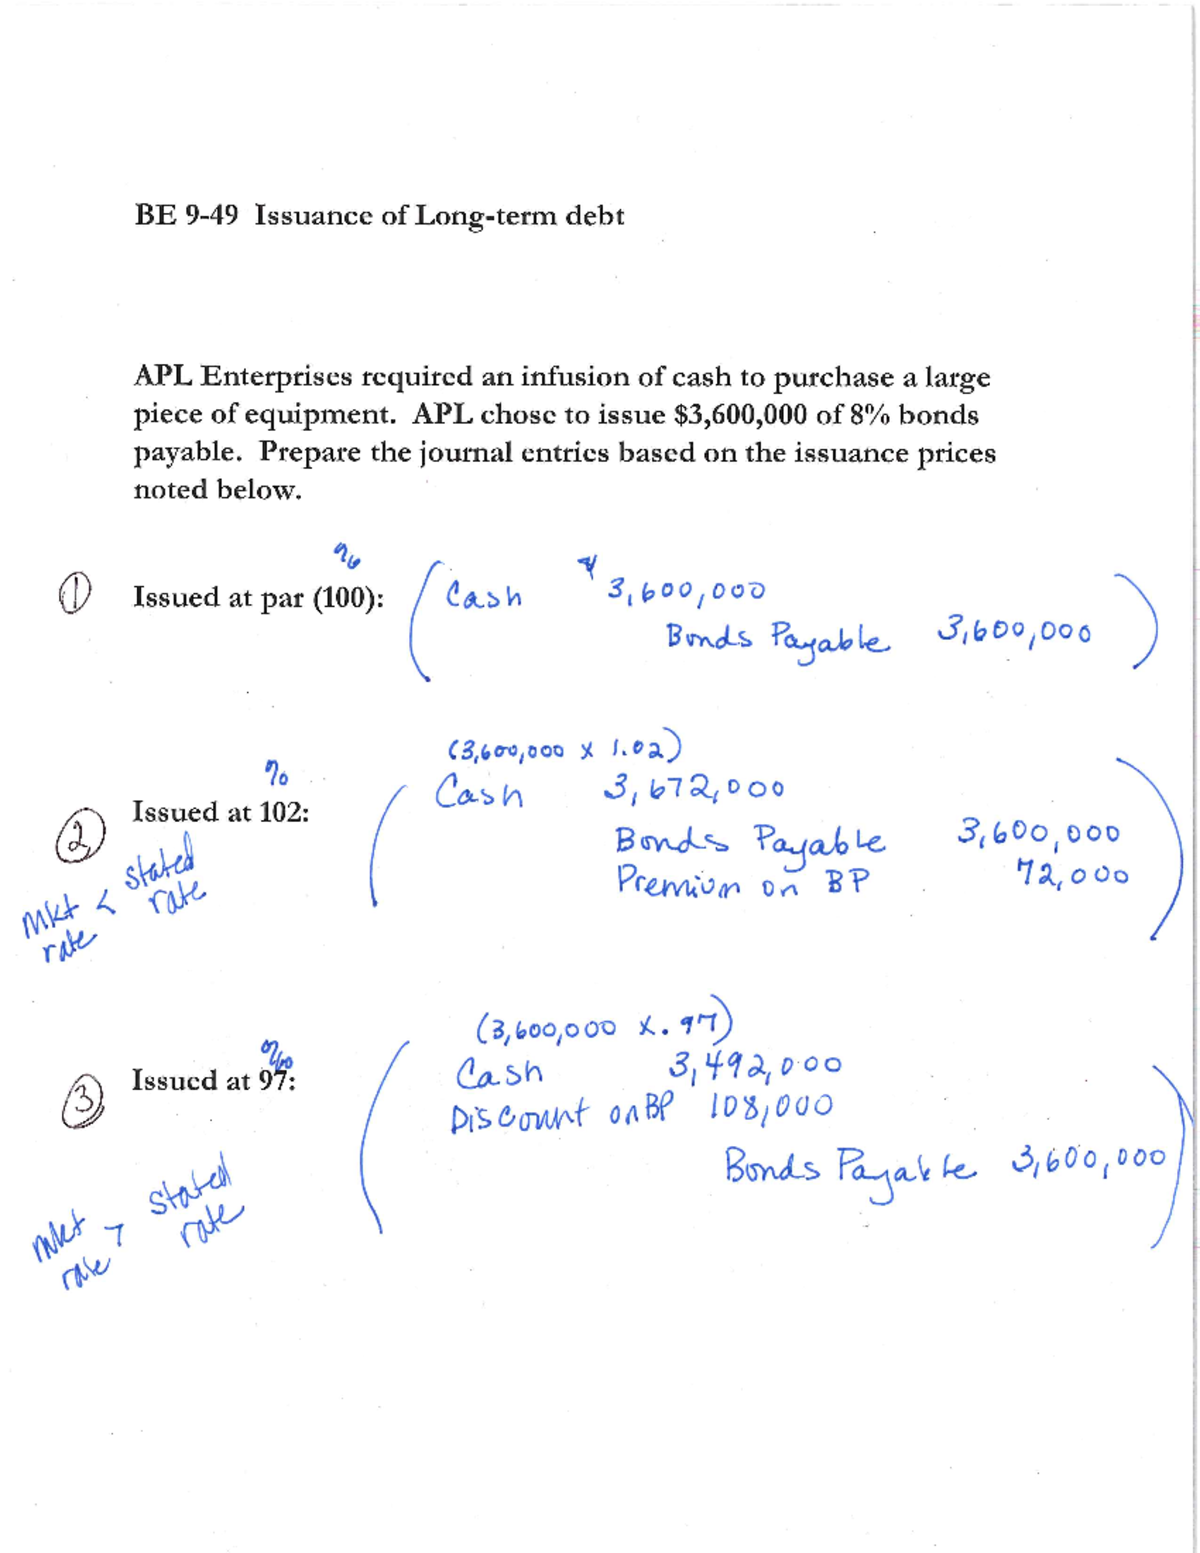 BE 9-49 Issuance of Long-term debt
APL Enterprises required an infusion of cash to purchase a large
piece of equipment. APL chose to issue $3,600,000 of 8% bonds
payable. Prepare the journal entries based on the issuance prices
noted below.
%
① Issued at par (100): ( Cash 3,600,000
Bonds Payable 3,600,000 )
(3,600,000 x 1.02)
%
Cash 3,672,000
② Issued at 102:
Bonds Payable 3,600,000
Premium on BP 72,000
mkt rate < stated rate
(3,600,000 x .97)
%
Cash 3,492,000
③ Issued at 97:
Discount on BP 108,000
Bonds Payable 3,600,000
mkt rate > stated rate